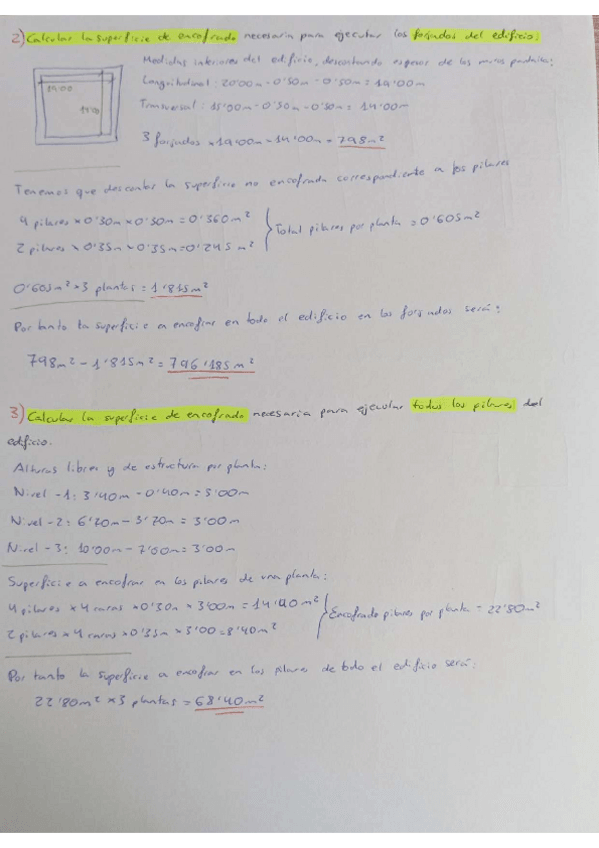 2) Calcular la superficie de encofrado necesaria para ejecutar los forjados del edificio:
Medidas interiores del edificio, descontando espesor de los muros pantalla:
19'00
14'00
Longitudinal: 20'00m - 0'50m - 0'50m = 19'00m
Transversal: 15'00m - 0'50m - 0'50m = 14'00m
3 forjados x 19'00m x 14'00m = 798m²
Tenemos que descontar la superficie no encofrada correspondiente a los pilares
4 pilares x 0'30m x 0'30m = 0'360m²
2 pilares x 0'35m x 0'35m = 0'245 m²
Total pilares por planta = 0'605m²
0'605m² x 3 plantas = 1'815m²
Por tanto la superficie a encofrar en todo el edificio en los forjados será:
798m² - 1'815m² = 796'185m²
3) Calcular la superficie de encofrado necesaria para ejecutar todos los pilares del
edificio.
Alturas libres y de estructura por planta:
Nivel -1: 3'40m - 0'40m = 3'00m
Nivel -2: 6'70m - 3'70m = 3'00m
Nivel -3: 10'00m - 7'00m = 3'00m
Superficie a encofrar en los pilares de una planta:
4 pilares x 4 caras x 0'30m x 3'00m = 14'40m²
2 pilares x 4 caras x 0'35m x 3'00 = 8'40m²
Encofrado pilares por planta = 22'80m²
Por tanto la superficie a encofrar en los pilares de todo el edificio será:
22'80m² x 3 plantas = 68'40m²